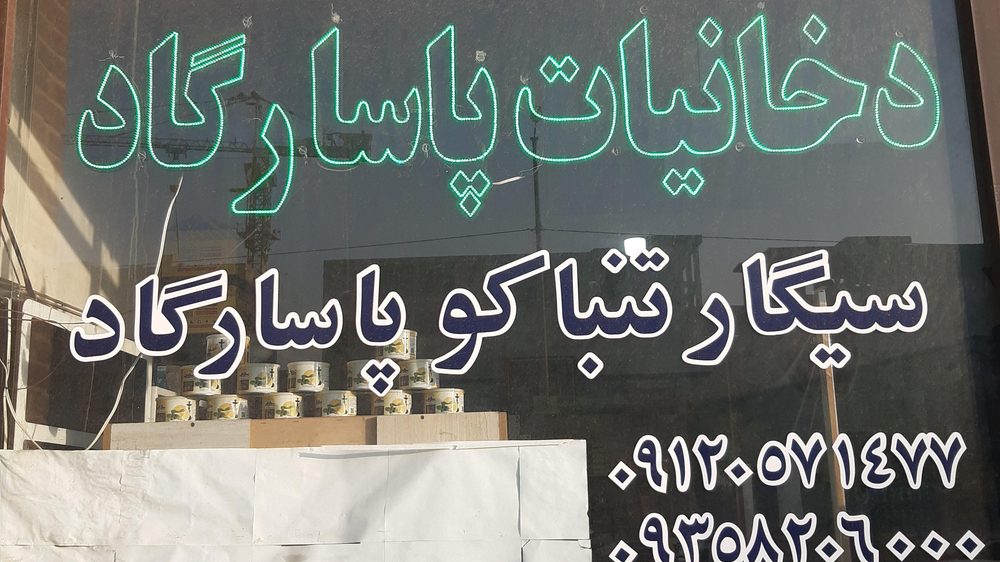 دخانیات پاسارگاد
سیگار تنباکو پاسارگاد
۰۹۱۲۰۵۷۱۴۷۷
۰۹۳۵۸۲۰۶۰۰۰